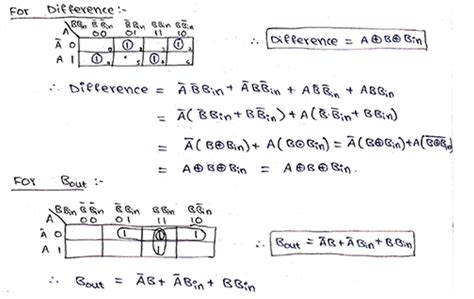 For Difference :-
A \ BBin B̄B̄in B̄Bin BBin BB̄in
00 01 11 10
Ā 0 1 1
A 1 1 1
∴ Difference = A⊕B⊕Bin
∴ Difference = ĀB̄Bin + ĀBB̄in + AB̄B̄in + ABBin
= Ā(B̄Bin + BB̄in) + A(B̄·B̄in + BBin)
= Ā(B⊕Bin) + A(B⊙Bin) = Ā(B⊕Bin) + A(B⊕Bin)‾
= A⊕B⊕Bin = A⊕B⊕Bin.
For Bout :-
A \ BBin B̄B̄in B̄Bin BBin BB̄in
00 01 11 10
Ā 0 1 1 1
A 1 1
∴ Bout = ĀB + ĀBin + BBin
∴ Bout = ĀB + ĀBin + BBin